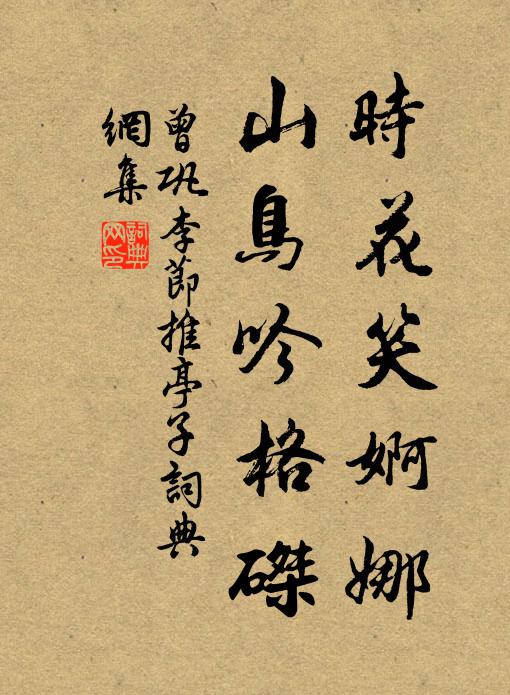 時花笑婀娜
山鳥吟格磔
曾巩李節推亭子詞典
網集
詞典
网印